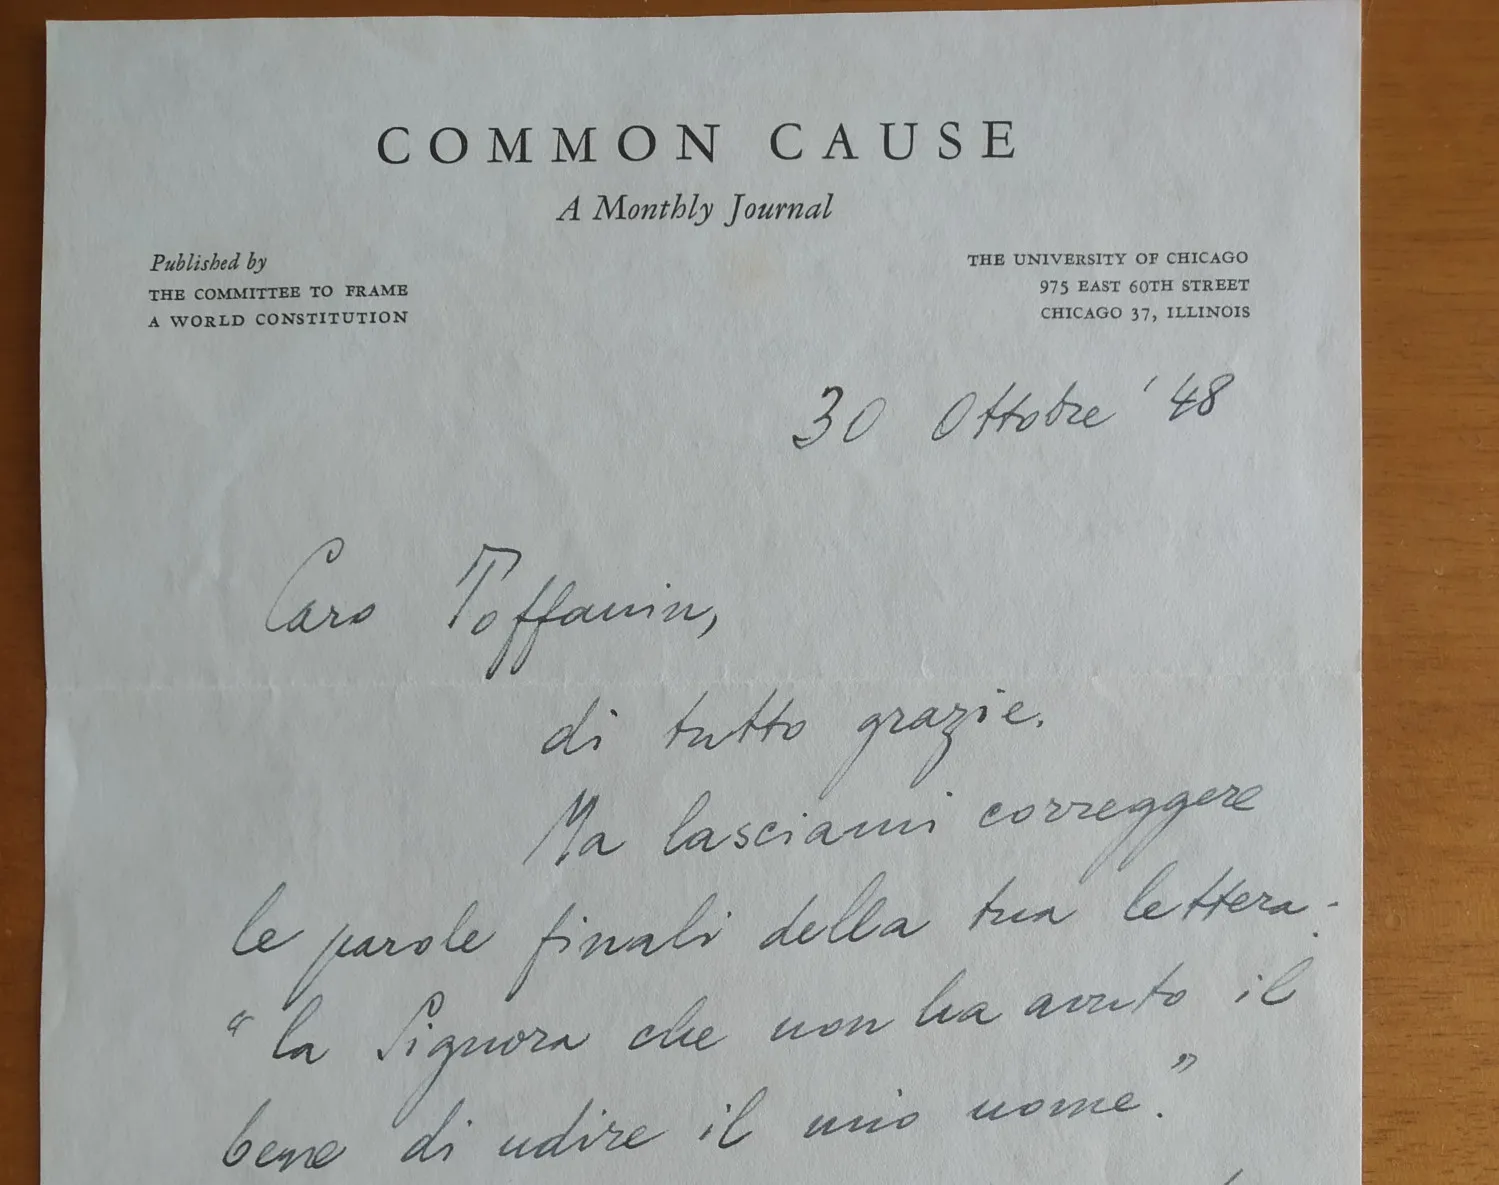 COMMON CAUSE
A Monthly Journal
Published by
THE COMMITTEE TO FRAME
A WORLD CONSTITUTION
THE UNIVERSITY OF CHICAGO
975 EAST 60TH STREET
CHICAGO 37, ILLINOIS
30 Ottobre '48
Caro Toffanin,
di tutto grazie.
Ma lasciami correggere
le parole finali della tua lettera:
“la Signora che non ha avuto il
bene di udire il mio nome.”